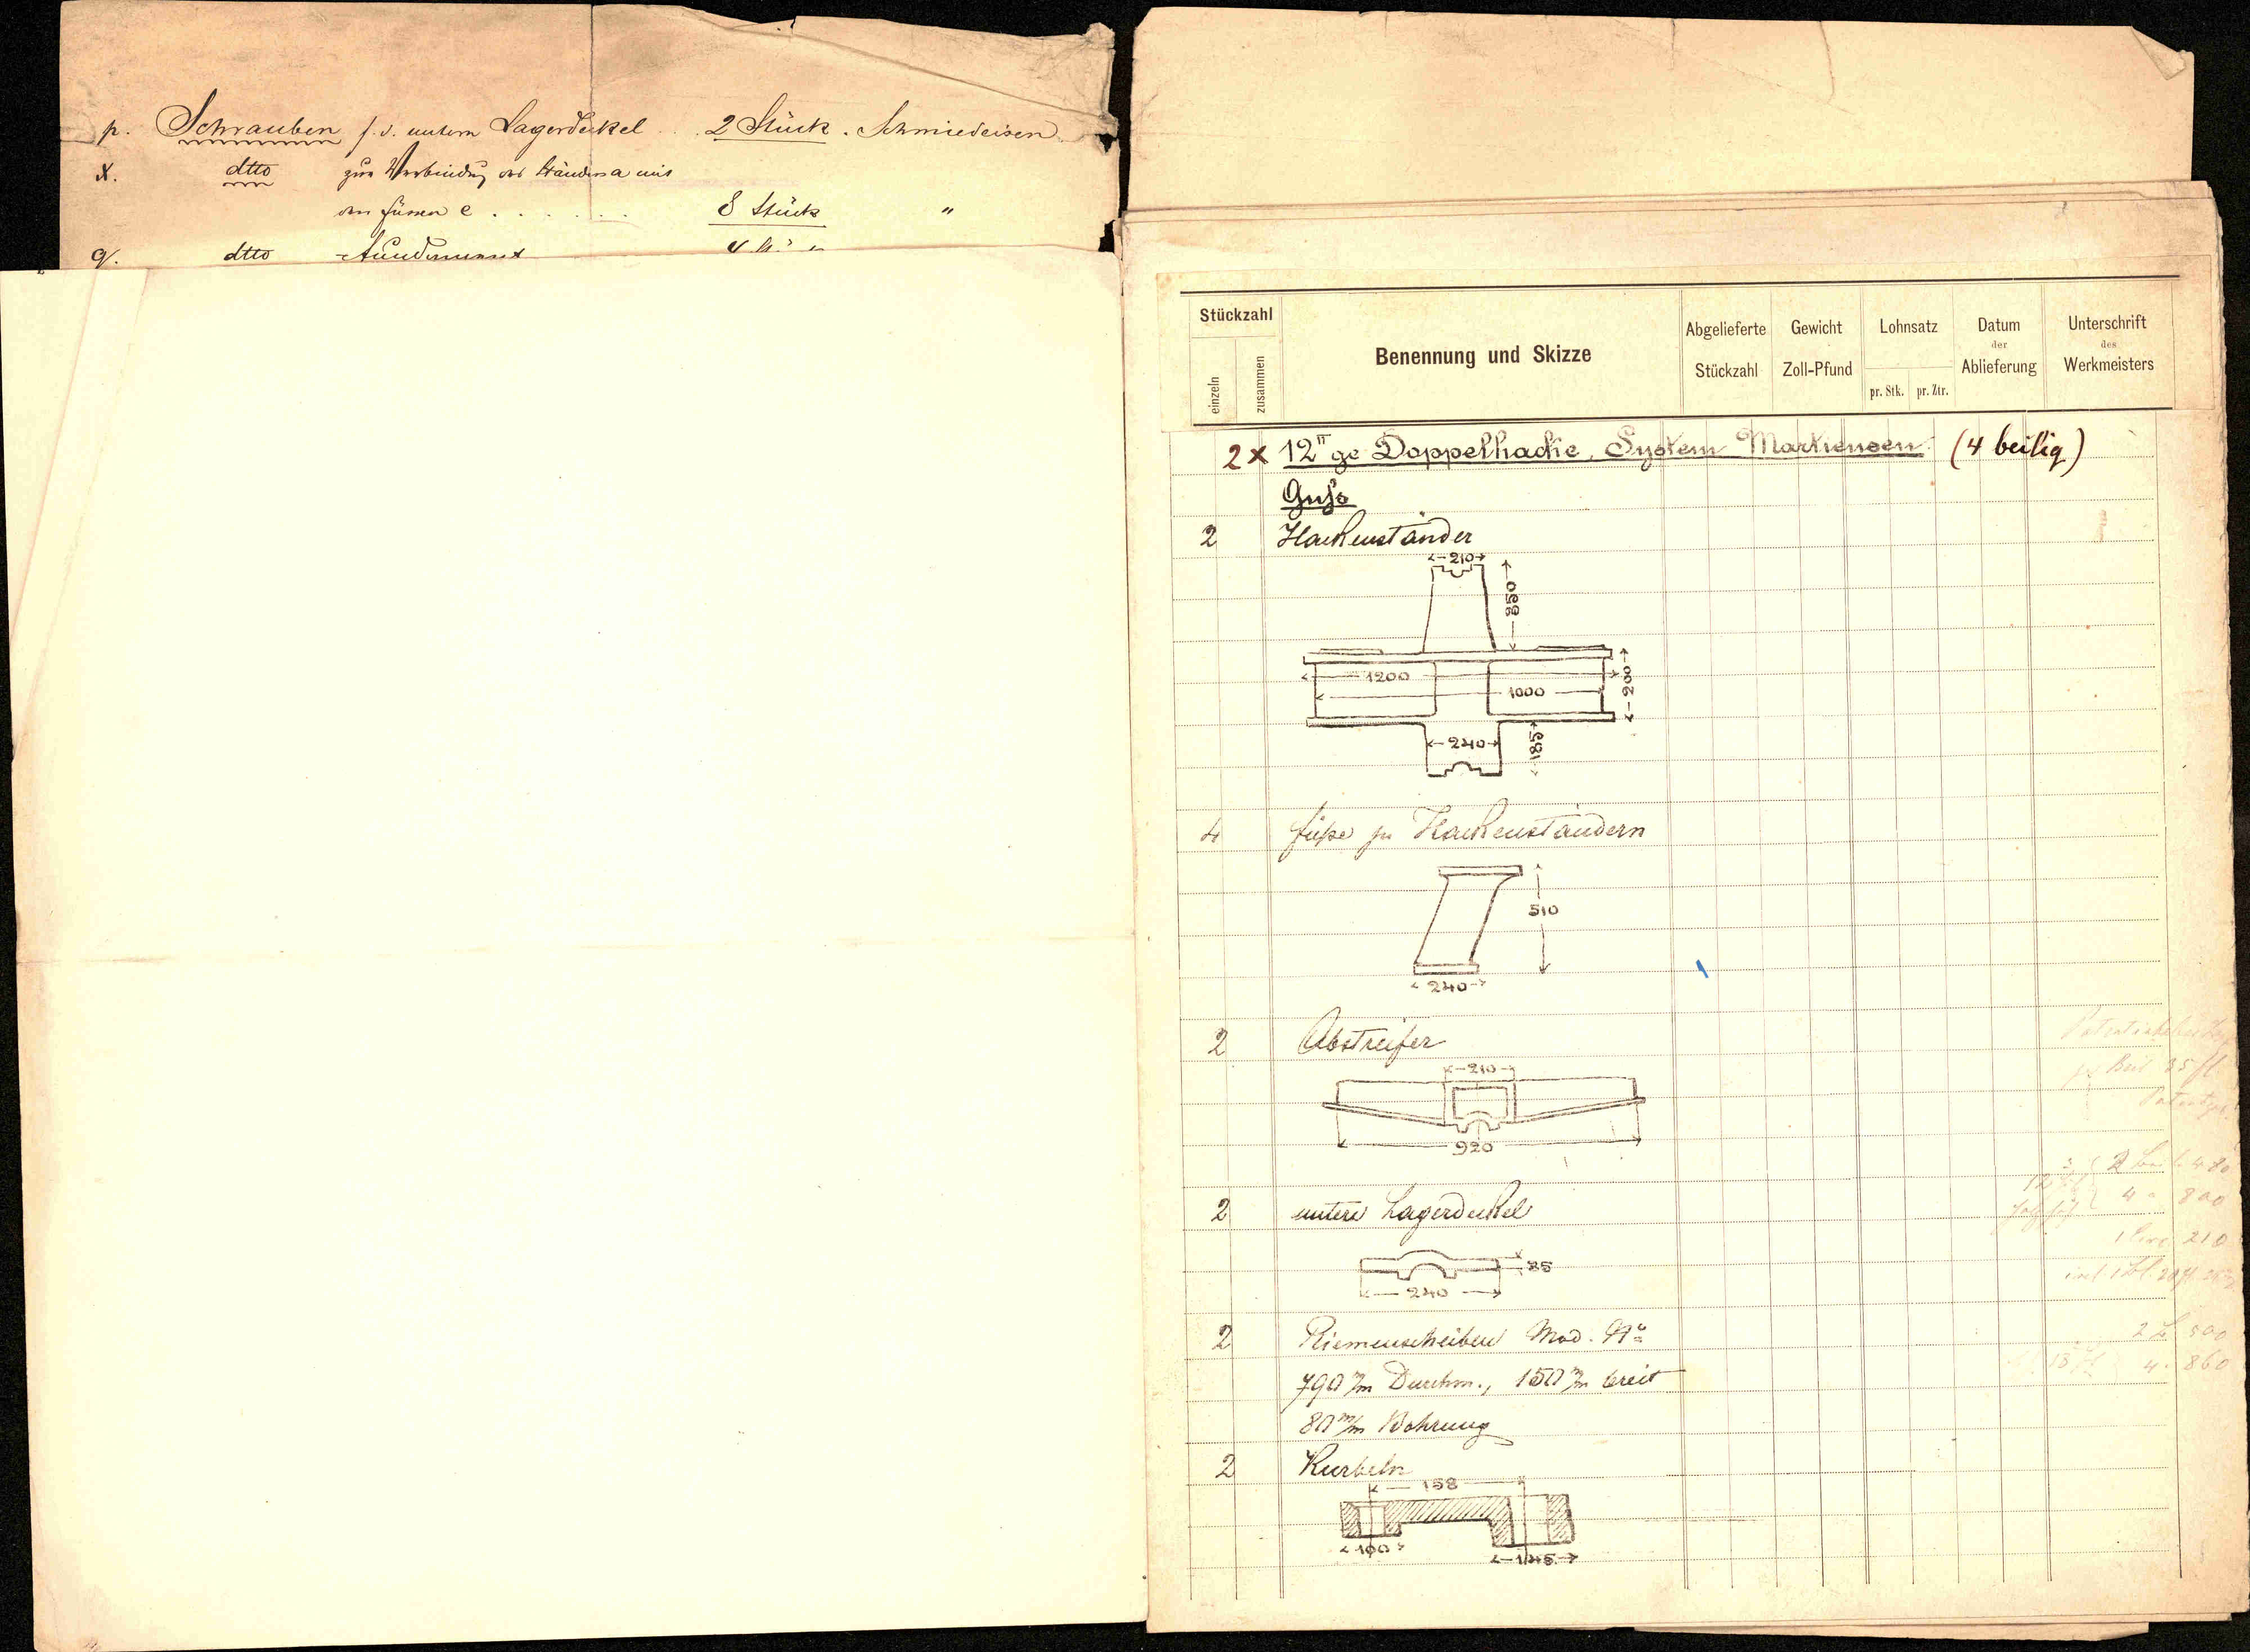 p. Schrauben f. d. untern Lagerdeckel . . 2 Stück . Schmiedeisen
x. dtto zur Verbindung des Ständers a mit
den Füssen e . . . . . . 8 Stück "
q. dtto
Stückzahl
einzeln
zusammen
Benennung und Skizze
Abgelieferte
Stückzahl
Gewicht
Zoll-Pfund
Lohnsatz
pr. Stk. pr. Ztr.
Datum
der
Ablieferung
Unterschrift
des
Werkmeisters
2x 12"ge Doppelhacke, System Martiensen (4 beilig)
Guss
2 Hackenständer
210
850
1200
1000
200
240
185
4 Füße zu Hackenständern
510
240
2 Abstreifer
210
920
2 untere Lagerdeckel
25
240
2 Riemenscheiben Mod. No
790 m/m Durchm., 150 m/m breit
80 m/m Bohrung
2 Kurbeln
158
100
145
4 " 800
210
2 500
4 " 860